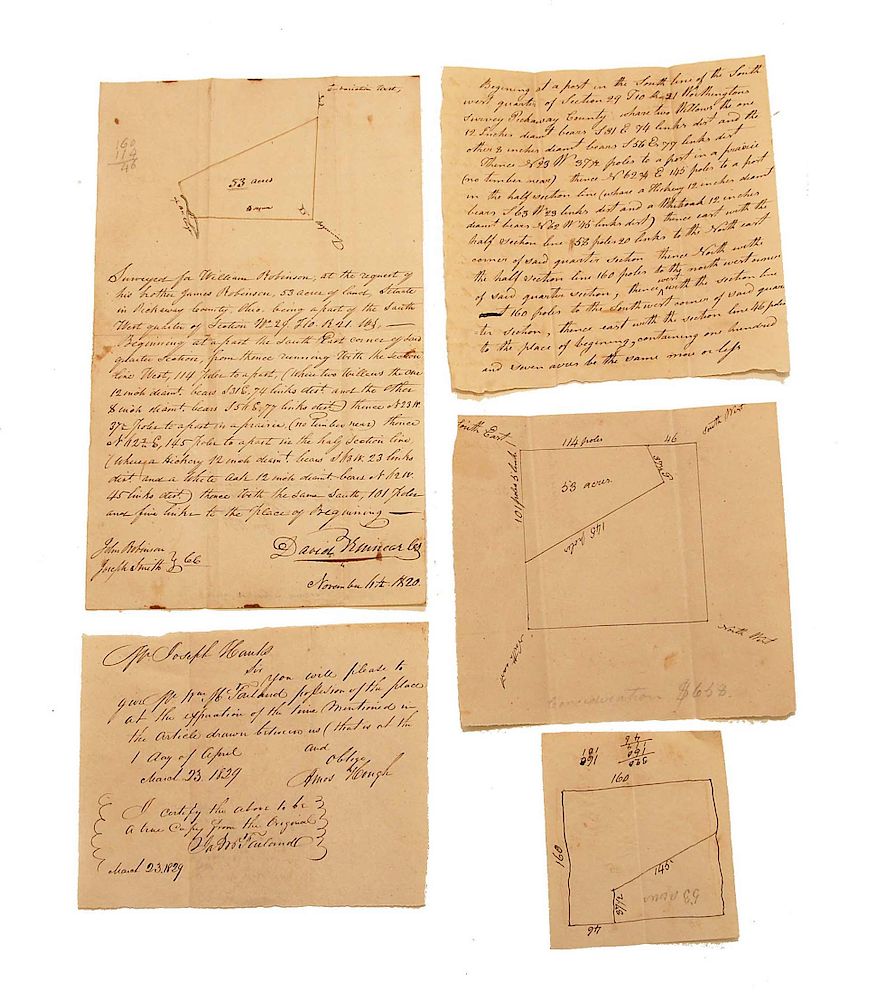 160
114
46
Variation West,
53 acres
Surveyed for William Robinson, at the request of
his brother James Robinson, 53 acre of land, Situate
in Pickaway County, Ohio. being a part of the South
West quarter of Section No 29. T.10. R 21. WS, —
Beginning at a post the South East corner of said
quarter Section, from thence running With the Section
line West, 114 Poles to a post, (Where two Willows the one
12 inch diamt. bears S 31 E, 74 links dist. and the other
8 inch diamt. bears S 56 E, 77 links dist.) thence N 23 W.
37½ Poles to a post in a prairie, (no timber near) thence
N 62¾ E, 145 Poles to a post in the half Section line
(Where a Hickory 12 inch diamt. bears S 63 W. 23 links
dist. and a White Oak 12 inch diamt. bears N 62 W.
45 links dist.) thence With the same South, 101 Poles
and five links to the Place of Beginning —
John Robinson
Joseph Smith } CC
David Kinnear
November 1820.
Begining at a post in the South line of the South
west quarter of Section 29 T10 R21 Worthingtons
Survey Pickaway County whare two Willows the one
12 Inches diamt bears S31 E 74 links dist and the
other 8 inches diamt bears S56 E 77 links dist
Thence N23 W 37½ poles to a post in a prairie
(no timber near) thence N 62¾ E 145 poles to a post
in the half section line (whare a Hickory 12 inches diamt
bears S63 W 23 links dist and a Whiteoak 12 inches
diamt bears N62 W 45 links dist) thence east with the
half section line 58 poles 20 links to the North east
corner of said quarter section thence North with
the half section line 160 poles to the north west corner
of said quarter section, thence west with the section line
160 poles to the Southwest corner of said quar
ter section, thence east with the section line 46 poles
to the place of begining, containing one hundred
and seven acres be the same more or less
South East
114 poles
46
South West
101 poles 5 links
53 acres
37½ p
145 poles
North West
Consideration $658.
Mr Joseph Hanks
Sir you will please to
give Mr Wm McFarland possesion of the place
at the expration of the time Mentioned in
the Article drawn between us (that is at the
1 day of April and
oblige
March 23. 1829
Amos Hough
I certify the above to be
a true Copy from the Original
March 23. 1829
160
160
145
37½
53 acres
46